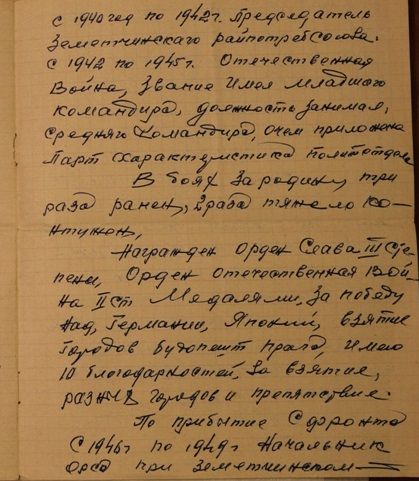 с 1940 год по 1942 г. Председатель
Земетчинскаго райпотребсоюза.
с 1942 по 1945 г. Отечественная
Война, звание имея младшего
командира, должность занимая,
среднего командира, о чем приложена
Парт характеристика Политотдела
В боях за родину, три
раза ранен, 2 раза тяжело ко-
нтужен,
Награжден Орден Слава III сте-
пени, Орден отечественная вой-
на II ст Медалями, За победу
над, Германии, Японии, взятие
городов Будопешт прага, имею
10 благодарностей, за взятие,
разных городов и препятствие.
По прибытие с фронта
с 1946 г по 1949 г Начальник
Орса при Земетчинском